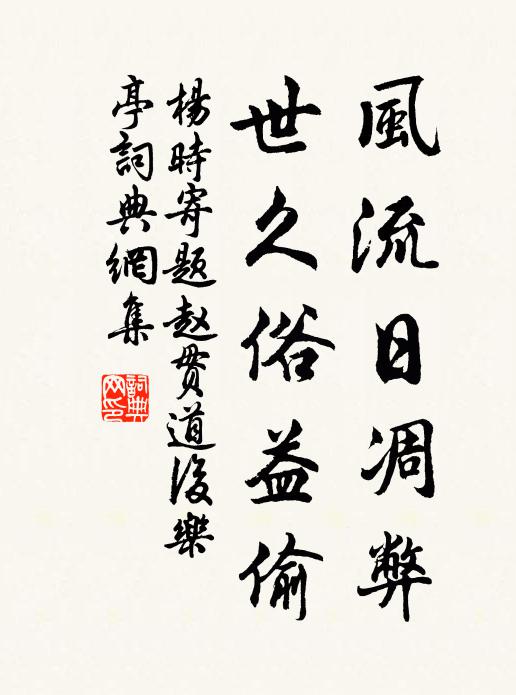 風流日凋弊
世久俗益偷
楊時寄題赵贯道後樂
亭詞典網集
詞典
网印